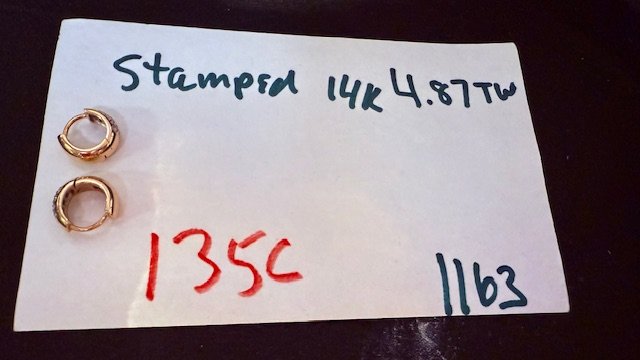 Stamped 14K 4.87TW
135C
1163